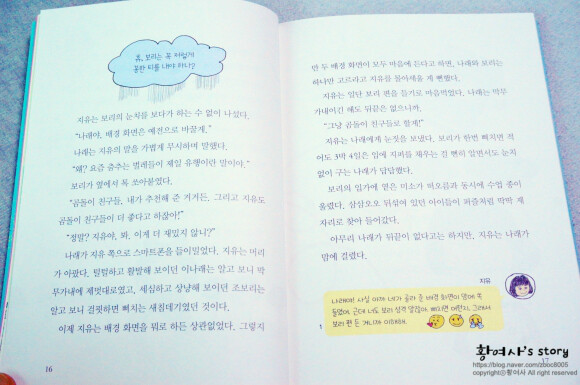 휴, 보리는 꼭 저렇게
꽁한 티를 내야 하나?
지유는 보리의 눈치를 보다가 하는 수 없이 나섰다.
“나래야, 배경 화면은 예전으로 바꿀게.”
나래는 지유의 말을 가볍게 무시하며 말했다.
“왜? 요즘 춤추는 벌레들이 제일 유행이란 말이야.”
보리가 옆에서 톡 쏘아붙였다.
“곰돌이 친구들, 내가 추천해 준 거거든. 그리고 지유도
곰돌이 친구들이 더 좋다고 하잖아!”
“정말? 지유야, 봐. 이게 더 재밌지 않니?”
나래가 지유 쪽으로 스마트폰을 들이밀었다. 지유는 머리
가 아팠다. 털털하고 활발해 보이던 이나래는 알고 보니 막
무가내에 제멋대로였고, 세심하고 상냥해 보이던 조보리는
알고 보니 걸핏하면 삐치는 새침데기였던 것이다.
이제 지유는 배경 화면을 뭐로 하든 상관없었다. 그렇지
16
만 두 배경 화면이 모두 마음에 든다고 하면, 나래와 보리는
하나만 고르라고 지유를 몰아세울 게 뻔했다.
지유는 일단 보리 편을 들기로 마음먹었다. 나래는 막무
가내이긴 해도 뒤끝은 없으니까.
“그냥 곰돌이 친구들로 할게!”
지유는 나래에게 눈짓을 보냈다. 보리가 한번 삐치면 적
어도 3박 4일은 입에 지퍼를 채우는 걸 뻔히 알면서도 눈치
없이 구는 나래가 답답했다.
보리의 입가에 옅은 미소가 떠오름과 동시에 수업 종이
울렸다. 삼삼오오 뒤섞여 있던 아이들이 퍼즐처럼 딱딱 제
자리로 찾아 들어갔다.
아무리 나래가 뒤끝이 없다고는 하지만, 지유는 나래가
맘에 걸렸다.
지유
나래야! 사실 아까 네가 골라 준 배경 화면이 맘에 쏙
들었어. 근데 너도 보리 성격 알잖아. 삐치면 어떤지. 그래서
보리 편 든 거니까 이해해.
17
황여사's story
https://blog.naver.com/zooc8005
copyrightⓒ황여사 All right reserved